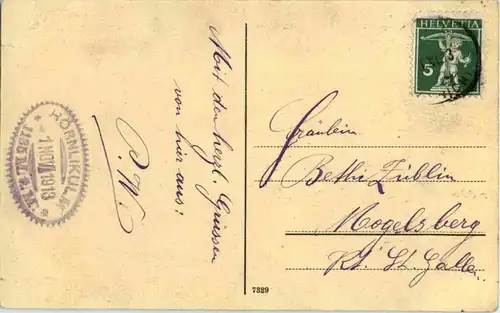 Mit den herzl. Grüssen
von hier aus:
P. W.
HÖRNLIKULM
1 NOV. 1913
1135 M.
HELVETIA
5
Fräulein
Bethi Züblin
Mogelsberg
Kt. St. Gallen
7329